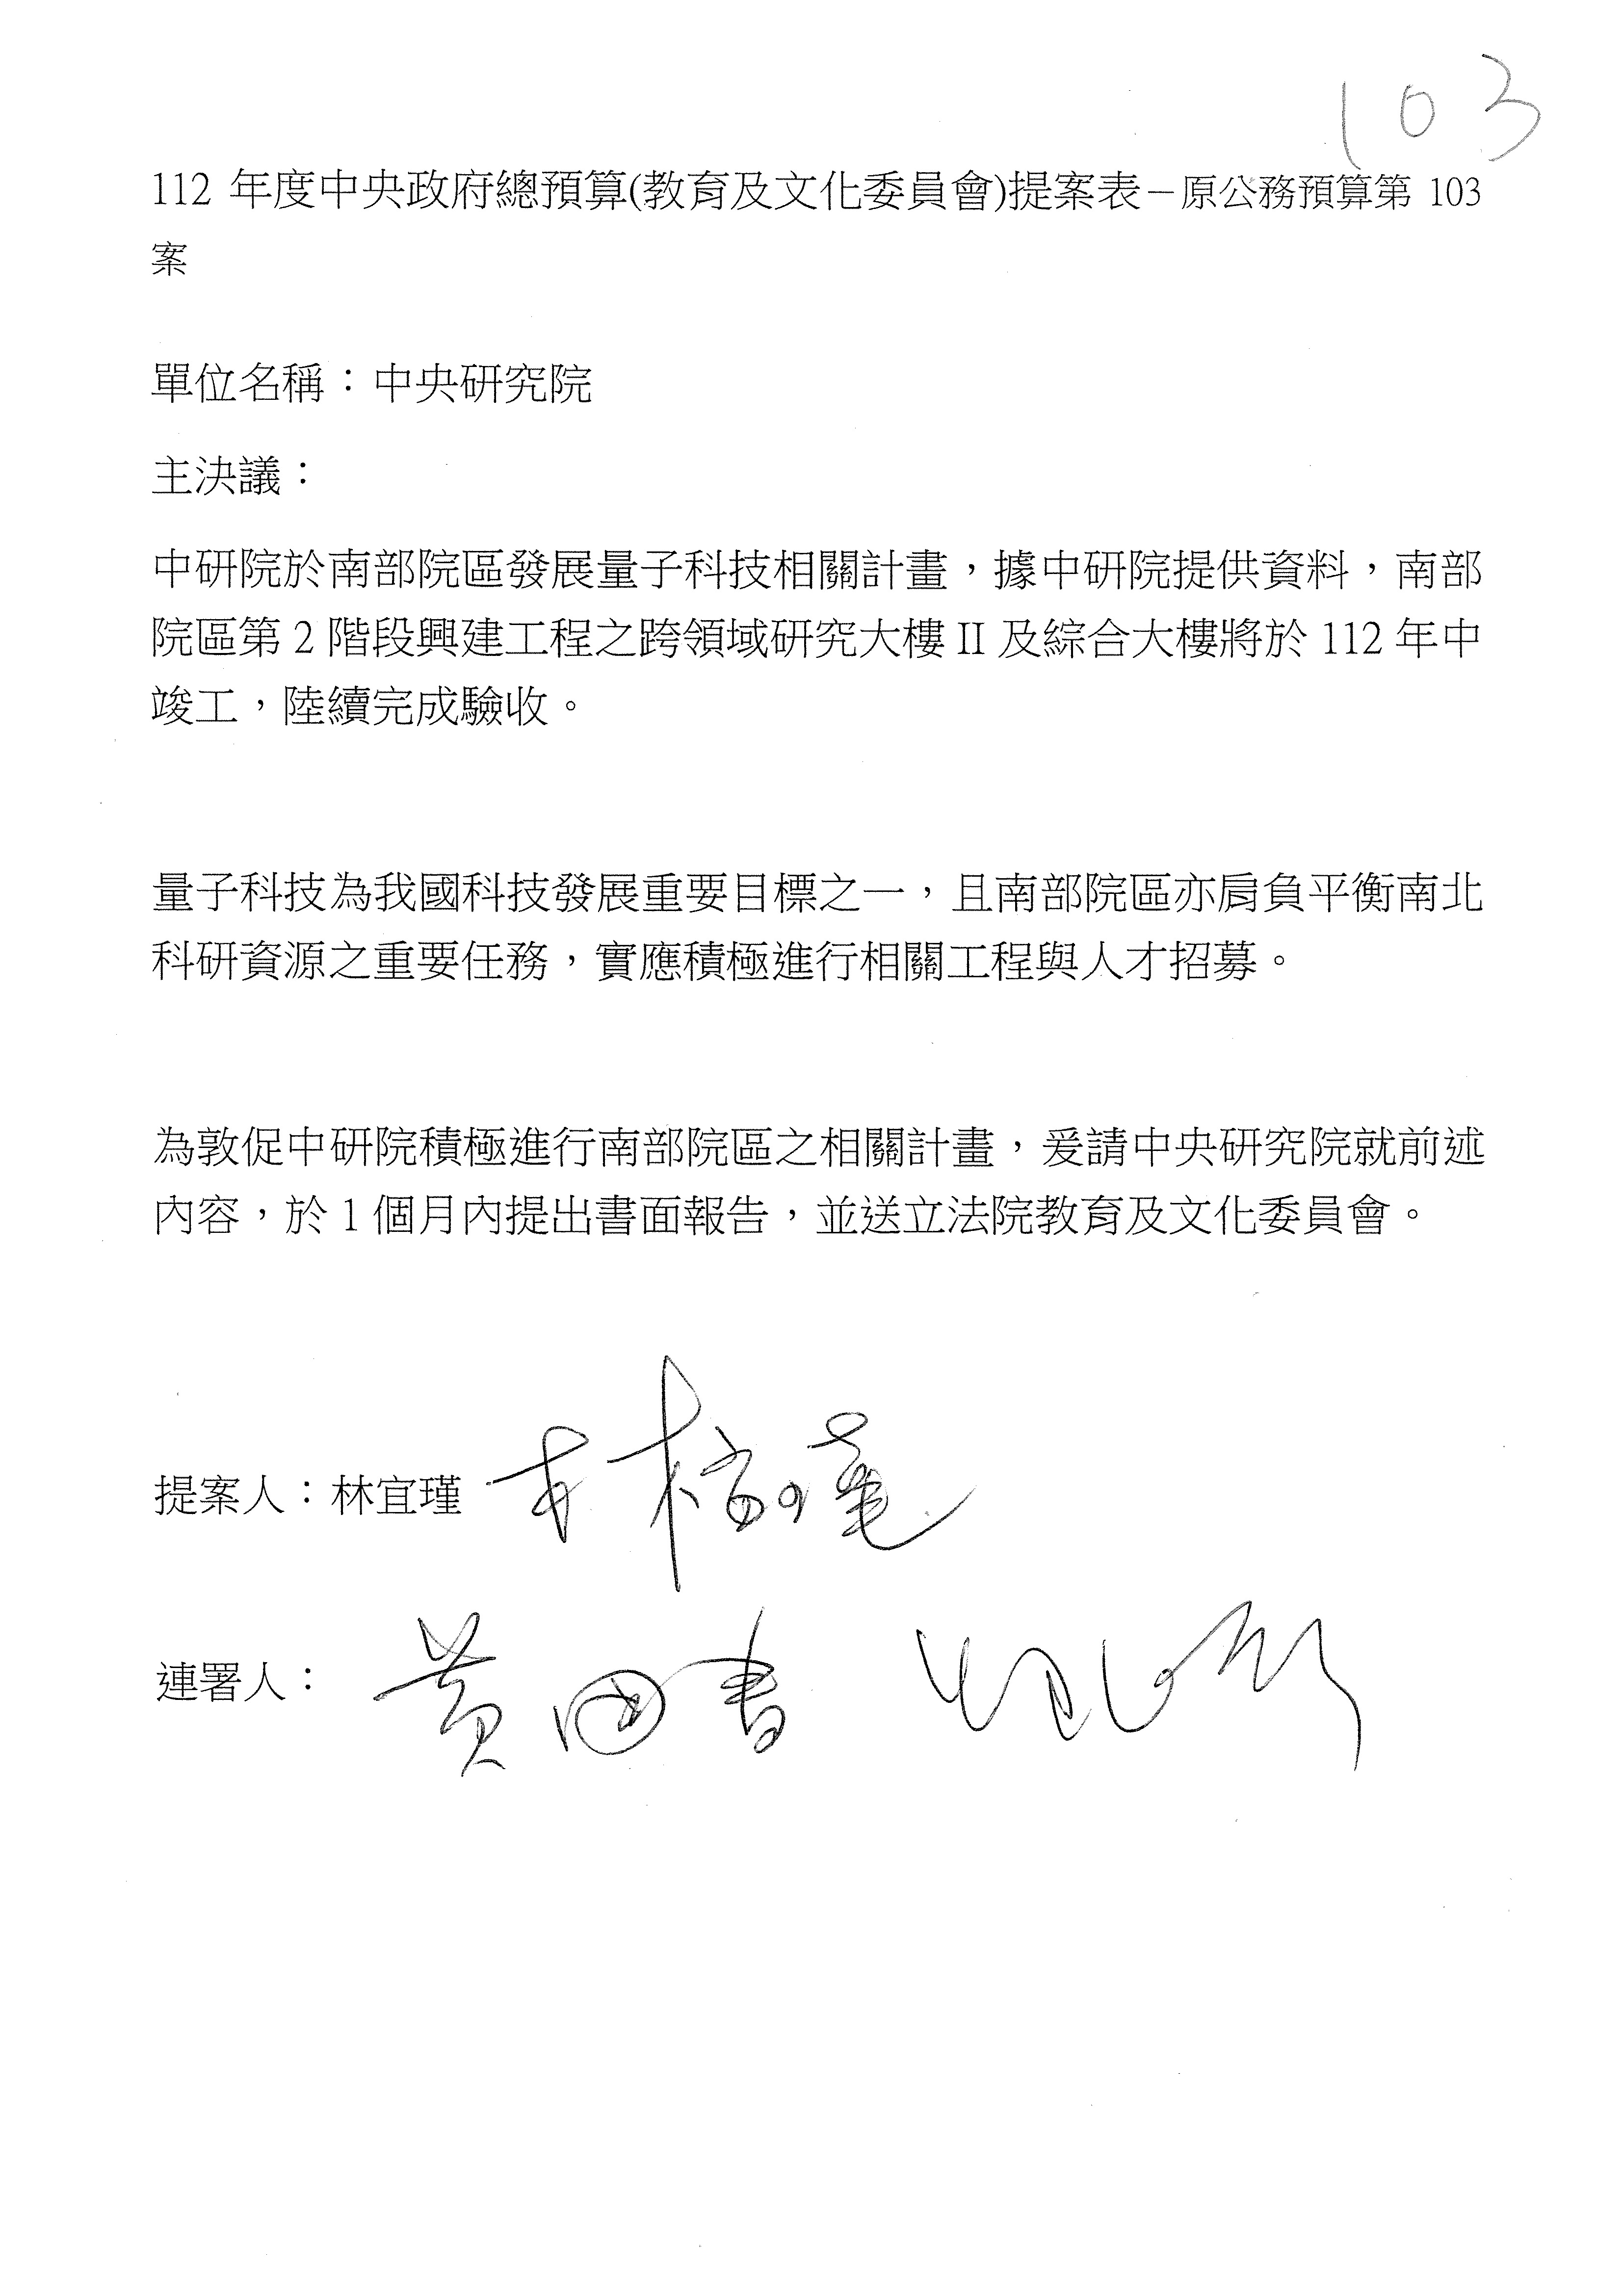 103
112 年度中央政府總預算(教育及文化委員會)提案表－原公務預算第 103
案
單位名稱：中央研究院
主決議：
中研院於南部院區發展量子科技相關計畫，據中研院提供資料，南部
院區第 2 階段興建工程之跨領域研究大樓 II 及綜合大樓將於 112 年中
竣工，陸續完成驗收。
量子科技為我國科技發展重要目標之一，且南部院區亦肩負平衡南北
科研資源之重要任務，實應積極進行相關工程與人才招募。
為敦促中研院積極進行南部院區之相關計畫，爰請中央研究院就前述
內容，於 1 個月內提出書面報告，並送立法院教育及文化委員會。
提案人：林宜瑾 林宜瑾
連署人： 黃國書